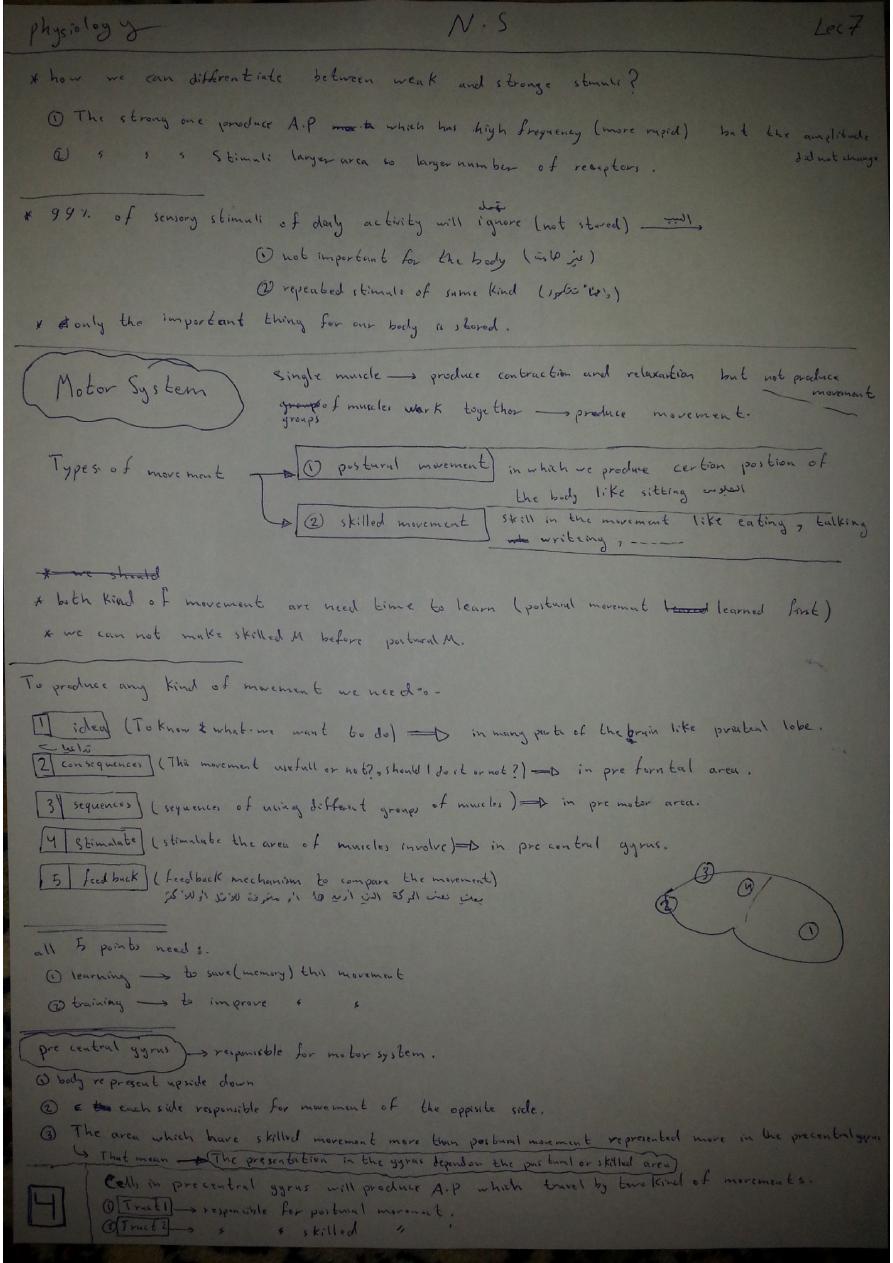 physiology N.S Lec 7
* how we can differentiate between weak and stronge stmuli?
① The strong one produce A.P which has high frequency (more rapid) but the amplitude
did not change
② " " " Stimuli larger area so larger number of receptors.
* 99% of sensory stimuli of daly activity will ignore (not stored) السبب
① not important for the body
② repeated stimuls of same kind
* only the important thing for our body is stored.
Motor System
Single muscle → produce contraction and relaxation but not produce
movement
groups of muscles work together → produce movement.
Types of movement
① postural movement in which we produce certion postion of
the body like sitting الجلوس
② skilled movement skill in the movement like eating, talking
writeing, -------
* we should
* both kind of movement are need time to learn (postural movemnt learned first)
* we can not make skilled M before postural M.
To produce any kind of movement we need:-
1 idea (To know what we want to do) ⇒ in many parts of the brain like lobe.
2 consequences (This movement usefull or not?, should I do it or not?) ⇒ in pre forntal area.
3 sequences (sequences of using different groups of muscles) ⇒ in pre motor area.
4 Stimalate (stimalate the area of muscles involve) ⇒ in pre central gyrus.
5 feedback (feedback mechanism to compare the movement)
2 3 4 1
all 5 points need:.
① learning → to save (memory) this movement
② training → to improve " "
pre central gyrus → responsible for motor system.
① body represent upside down
② each side responsible for movement of the opposite side.
③ The area which have skilled movement more than postural movement represented more in the precentral gyrus
That mean → The presentation in the gyrus dependon the postural or skilled area
Cells in precentral gyrus will produce A.P which travel by two kind of movements.
① Tract 1 → responsible for postural movemnt.
② Tract 2 → " " skilled "
4